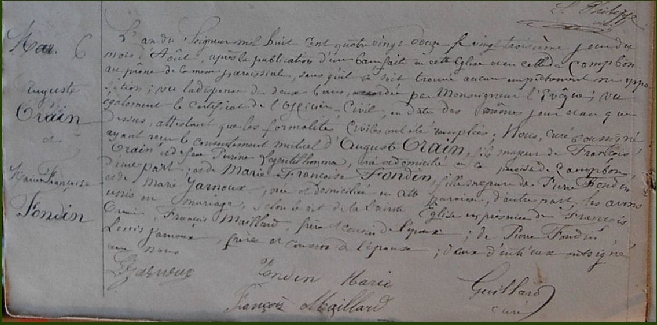 Mar. 6
Auguste
Orain
et
Marie Françoise
Fondin
L'an du Seigneur mil huit cent quatre vingt douze le vingt troisième jour du
mois d'Août, après la publication d'un ban fait en cette Eglise et en celle de Campbon
au prône de la messe paroissiale, sans qu'il se soit trouvé aucun empêchement ni oppo
sition; vu la dispense de deux bans, accordée par Monseigneur l'Evêque; vu
également le certificat de l'Officier Civil, en date des même jour et an que
dessus, attestant que les formalités Civiles ont été remplies, Nous, curé soussigné
ayant reçu le consentement mutuel d'Auguste Orain, fils majeur de François
Orain, et de feu Perrine, né et domicilié en la paroisse de Campbon
d'une part, et de Marie Françoise Fondin, fille majeure de Pierre Fondin
et de Marie Yarnoux, née et domiciliée en cette paroisse, d'autre part, les avons
unis en mariage, selon le rit de la Sainte Eglise en présence de François
François Maillard, frère et cousin de l'époux; de Pierre Fondin
Louis Yarnoux, frère et cousin de l'épouse; soussigné
avec nous
L Yarnoux
Fondin Marie
Guillard
François Maillard
curé